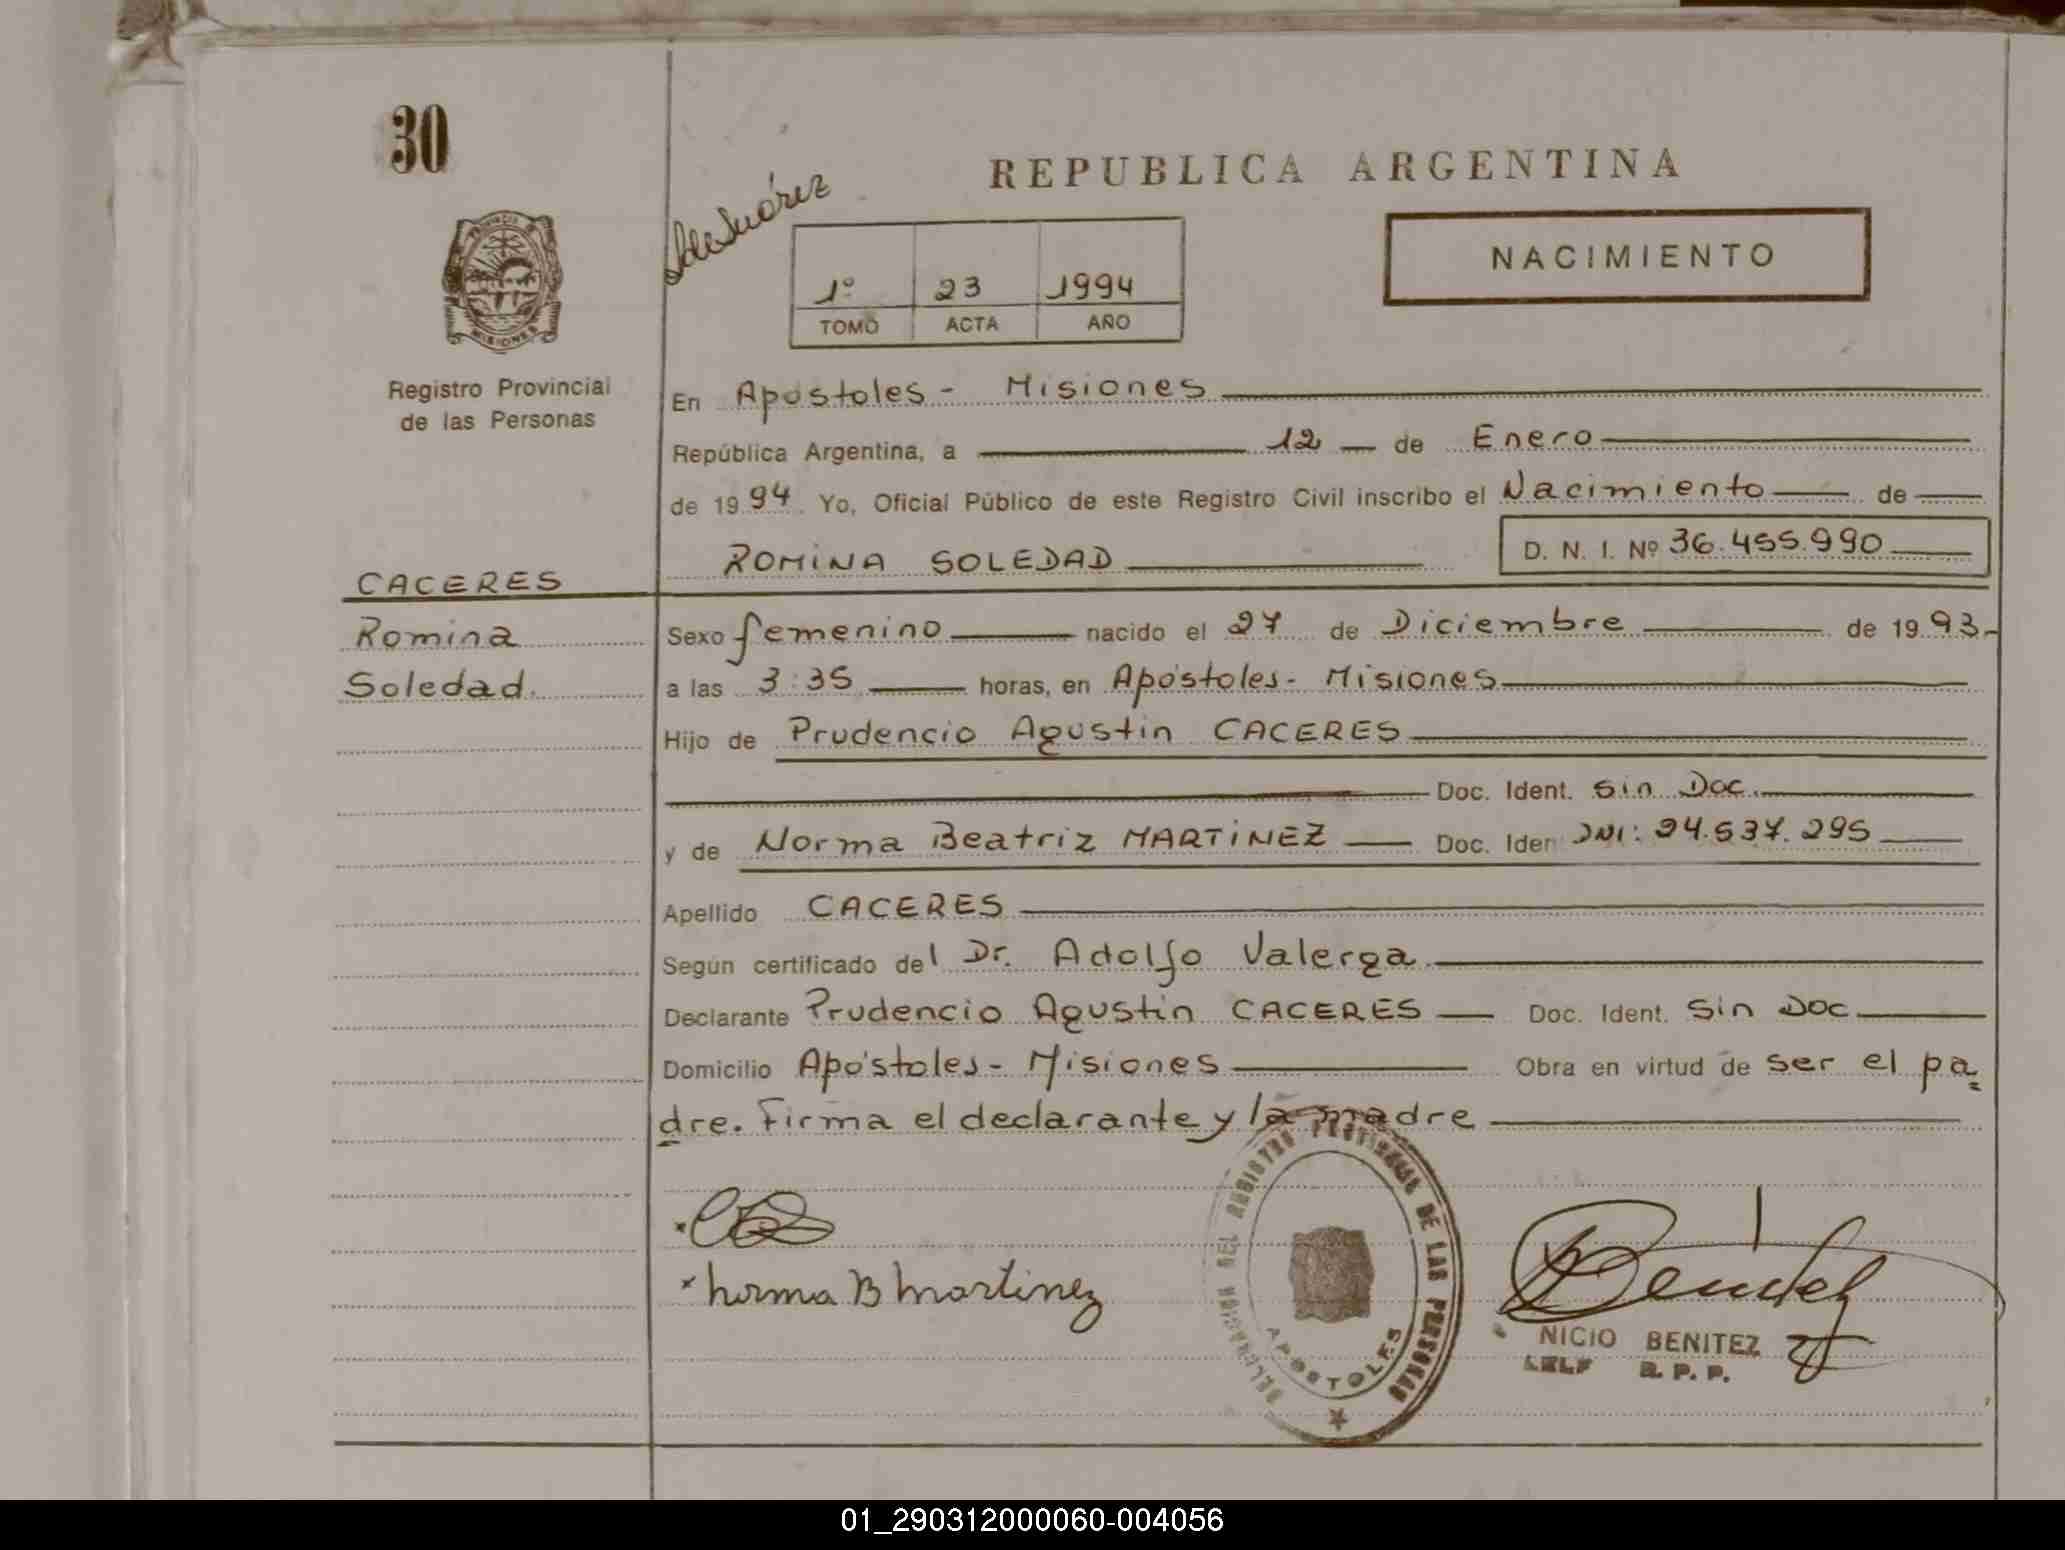 30
REPUBLICA ARGENTINA
NACIMIENTO
1º 23 1994
TOMO ACTA AÑO
MISIONES
Registro Provincial
de las Personas
En Apóstoles - Misiones
República Argentina, a 12 de Enero
de 1994. Yo, Oficial Público de este Registro Civil inscribo el Nacimiento de
ROMINA SOLEDAD D. N. I. Nº 36.455.990
CACERES
Romina
Soledad.
Sexo femenino nacido el 27 de Diciembre de 1993.-
a las 3:35 horas, en Apóstoles - Misiones
Hijo de Prudencio Agustin CACERES
Doc. Ident. Sin Doc.
y de Norma Beatriz MARTINEZ Doc. Iden DNI: 24.537.295
Apellido CACERES
Según certificado del Dr. Adolfo Valerga
Declarante Prudencio Agustin CACERES Doc. Ident. Sin Doc
Domicilio Apóstoles - Misiones Obra en virtud de ser el pa=
dre. Firma el declarante y la madre
Norma B Martinez
DELEGACION DEL REGISTRO PROVINCIAL DE LAS PERSONAS
APOSTOLES
NICIO BENITEZ
R. P. P.
01_290312000060-004056